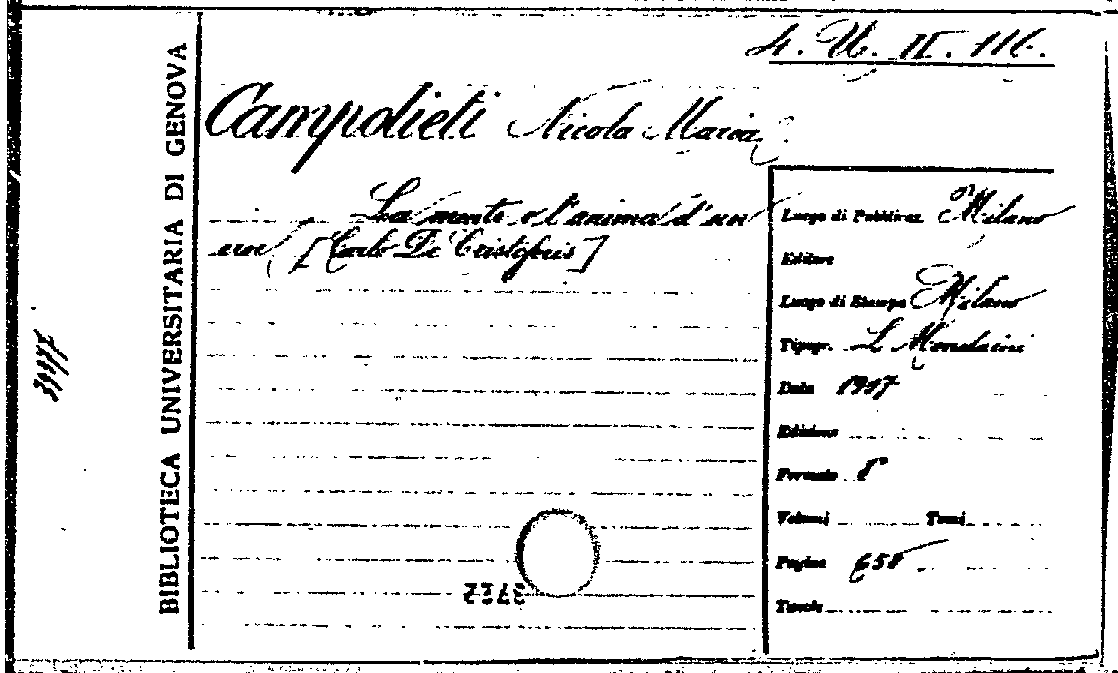 4. U. II. 116.
Campolieti Nicola Maria
La mente e l'anima d'un
[Carlo De Cristoforis]
BIBLIOTECA UNIVERSITARIA DI GENOVA
Luogo di Pubblicaz. Milano
Editore
Luogo di Stampa Milano
Tipogr. L. Mondaini
Data 1917
Edizione
Formato 8°
Volumi Tomi
Pagine 658
Tavole